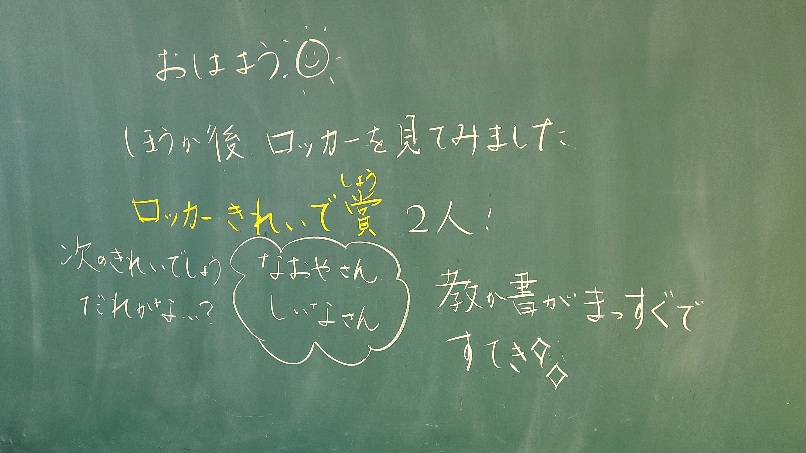 おはよう
ほうか後 ロッカーを見てみました
ロッカーきれいで賞 2人!
しょう
次のきれいでしょう
だれかな...?
なおやさん
しいなさん
教か書がまっすぐで
すてき